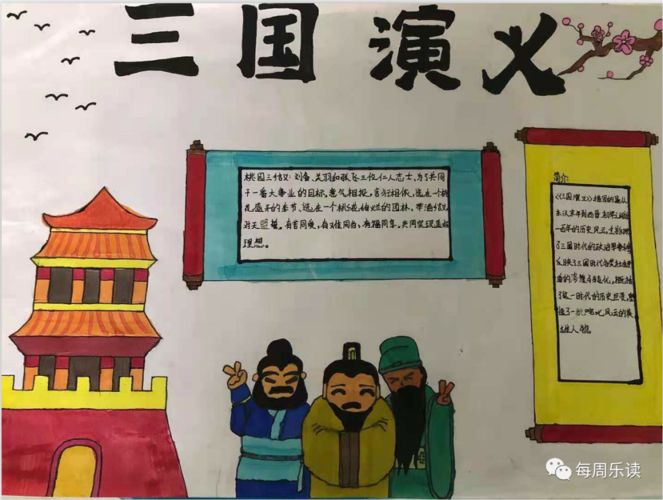 三国演义
桃园三结义:刘备、关羽和张飞三位仁人志士,为了共同
干一番大事业的目标,意气相投,言行相依,选在一个桃
花盛开的季节、选在一个桃花绚烂的园林,举酒结义
对天盟誓。有苦同受,有难同当,有福同享,共同实现美好
理想。
简介
国演义》描写的是从
东汉末年到西晋初年之间近
一百年的历史风云。
了三国时代的政治军事斗争
反映了三国时代各类社会矛
盾的渗透与转化,概括
了这一时代的历史巨变,塑
造了一批叱咤风云的英
雄人物。
每周乐读